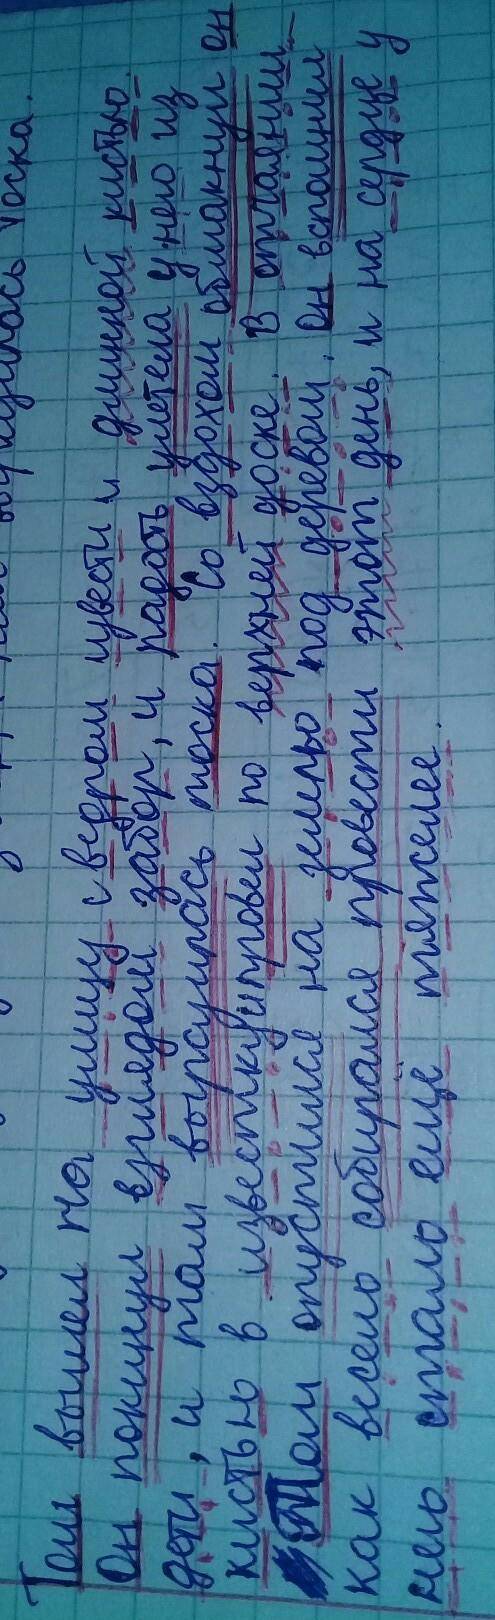 тоска.
Том вышел на улицу с ведром извести и длинной кистью.
Он покинул взглядом забор, и радость улетела у него из
дети, и там тоска. Со вздохом обмакнул он
кистью в известку и провел по верхней доске. В отчаянии
Том опустился на землю под деревом. Он вспомнил
как весело собирался провести этот день, и на сердце у
него стало еще тяжелее.